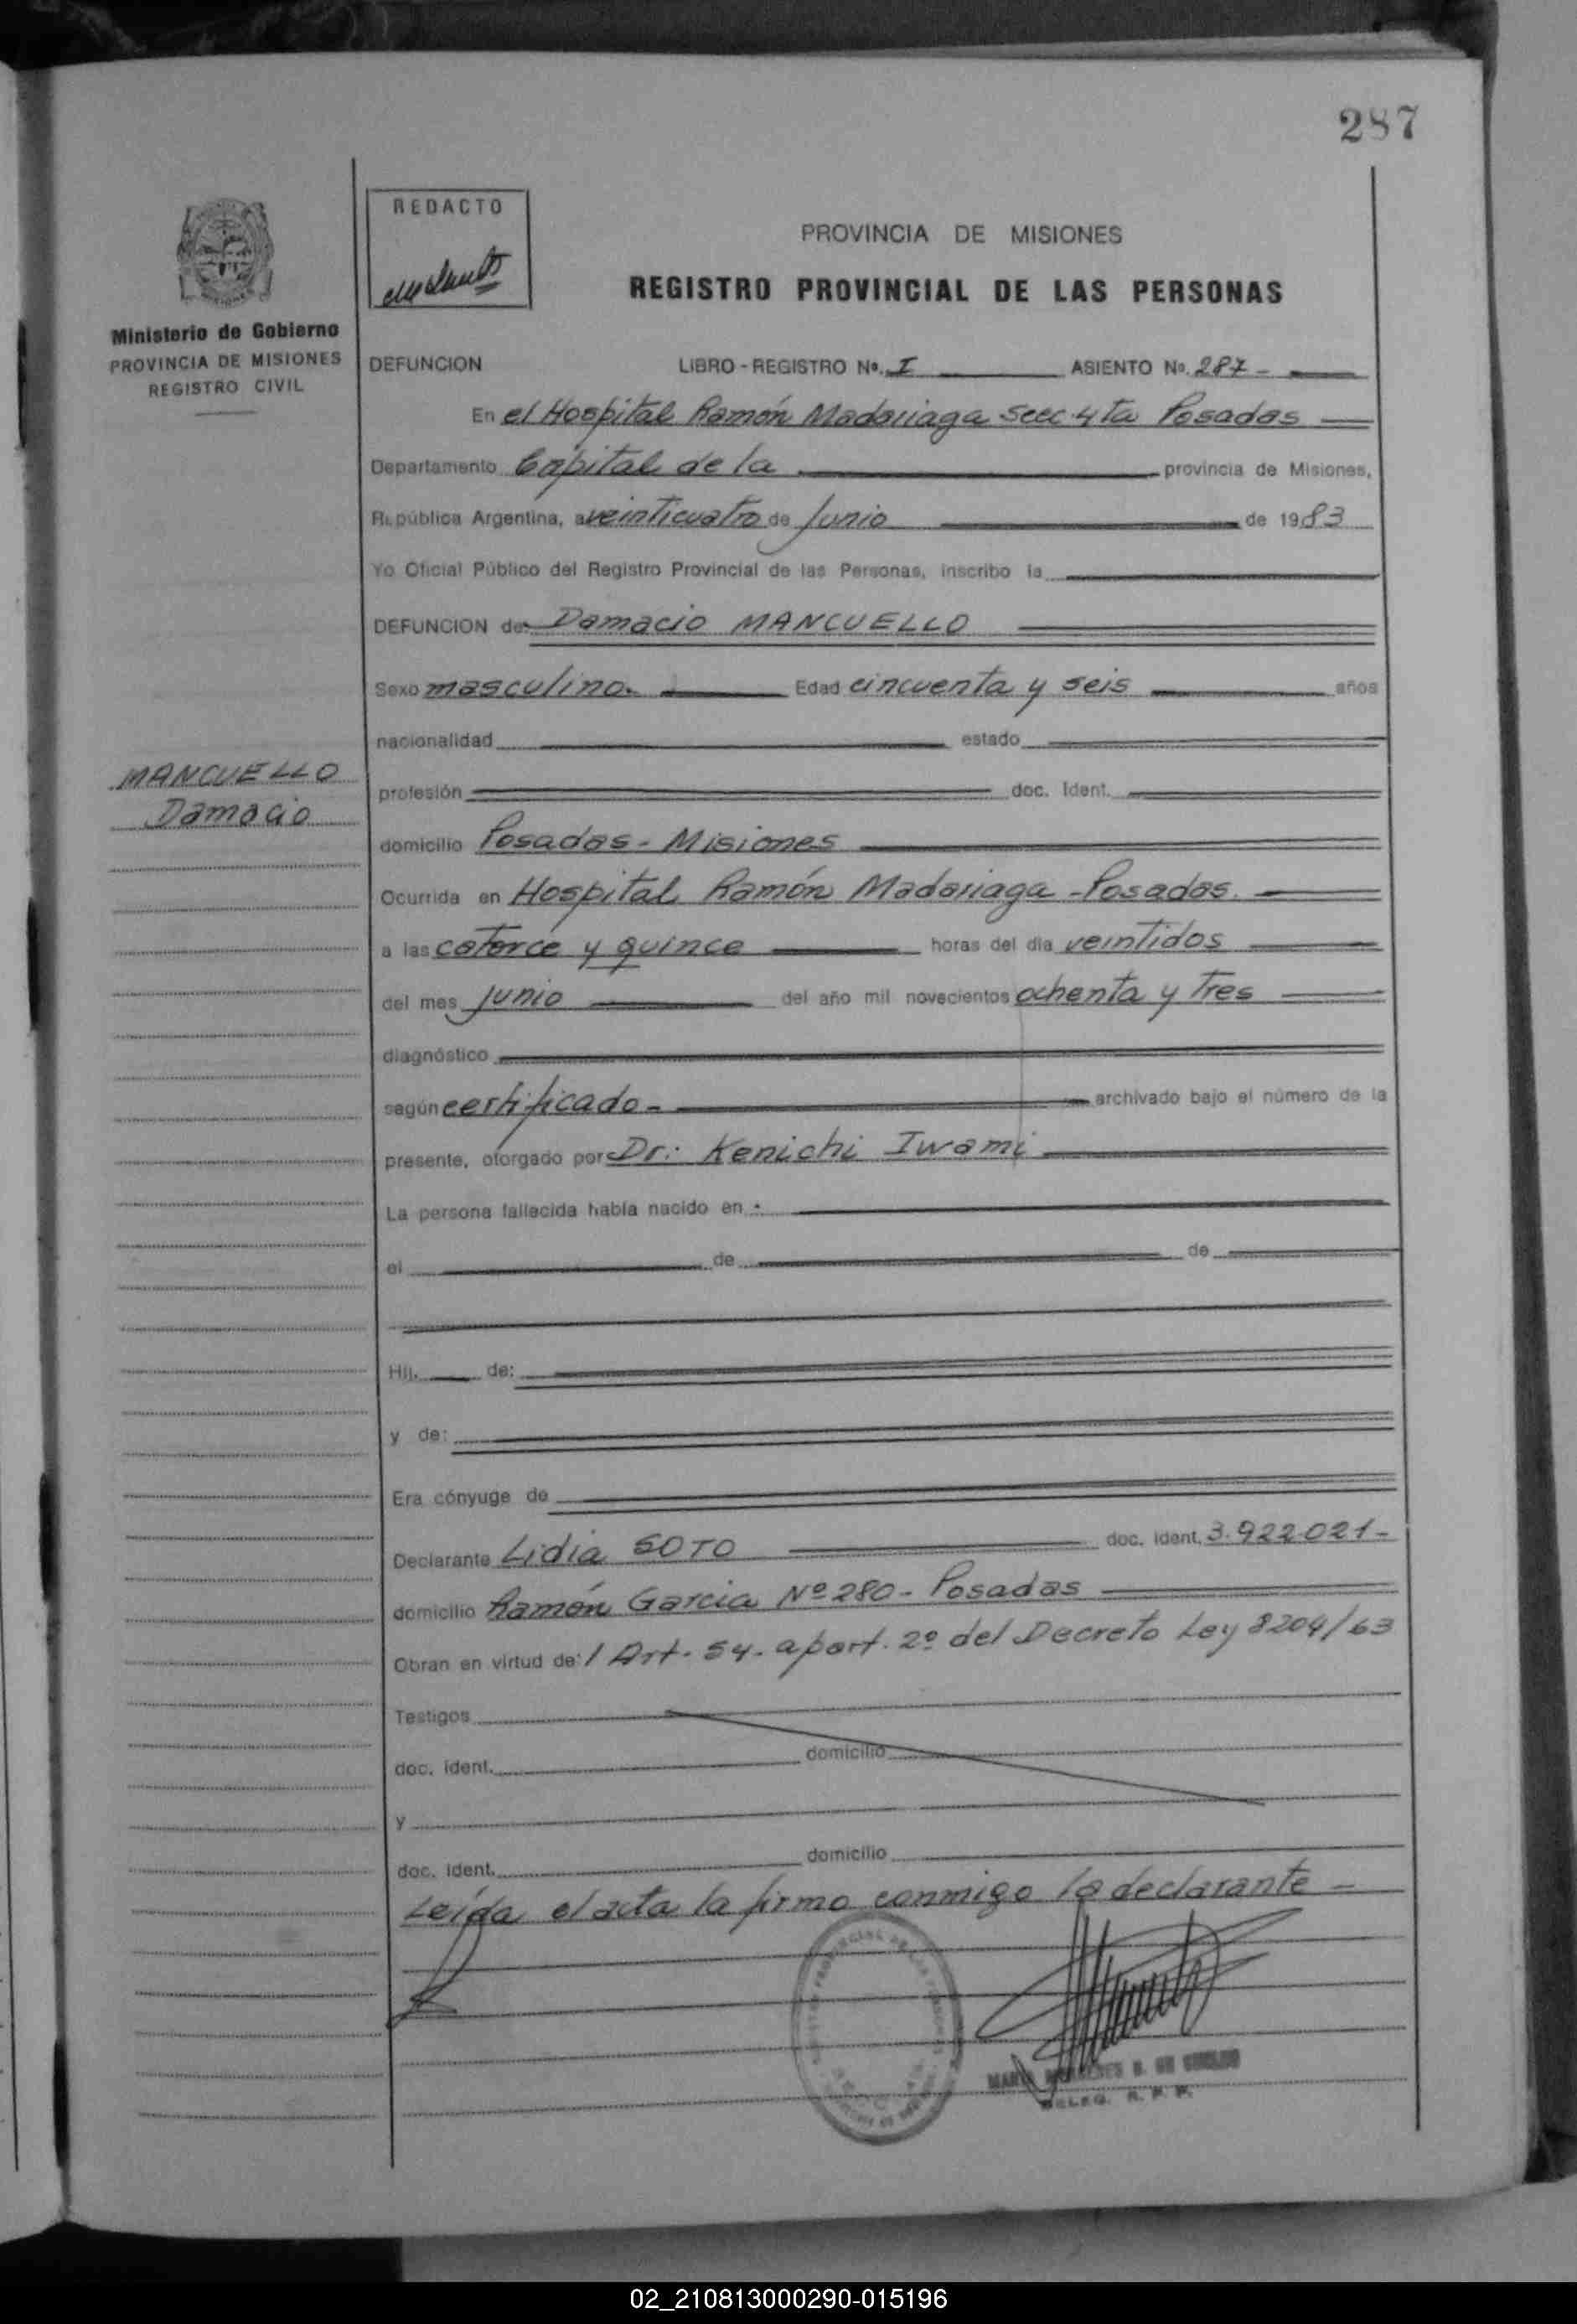 287
REDACTO
PROVINCIA DE MISIONES
REGISTRO PROVINCIAL DE LAS PERSONAS
Ministerio de Gobierno
PROVINCIA DE MISIONES
REGISTRO CIVIL
DEFUNCION LIBRO - REGISTRO No. I ASIENTO No. 287 -
En el Hospital Ramón Madariaga Secc. 4ta Posadas
Departamento Capital de la provincia de Misiones,
República Argentina, a veinticuatro de Junio de 1983
Yo Oficial Público del Registro Provincial de las Personas, inscribo la
DEFUNCION de Damacio MANCUELLO
Sexo masculino. Edad cincuenta y seis años
nacionalidad estado
MANCUELLO
Damacio
profesión doc. Ident.
domicilio Posadas - Misiones
Ocurrida en Hospital Ramón Madariaga - Posadas.
a las catorce y quince horas del día veintidos
del mes junio del año mil novecientos ochenta y tres
diagnóstico
según certificado - archivado bajo el número de la
presente, otorgado por Dr: Kenichi Iwami
La persona fallecida había nacido en
el de de
Hij. de:
y de:
Era cónyuge de
Declarante Lidia SOTO doc. ident. 3.922.021 -
domicilio Ramón Garcia Nº 280 - Posadas
Obran en virtud de: / Art. 54. apart. 2º del Decreto Ley 8204/63
Testigos
doc. ident. domicilio
y
doc. ident. domicilio
Leída el acta la firmo conmigo la declarante -
DELEG. R. P. P.
02_210813000290-015196